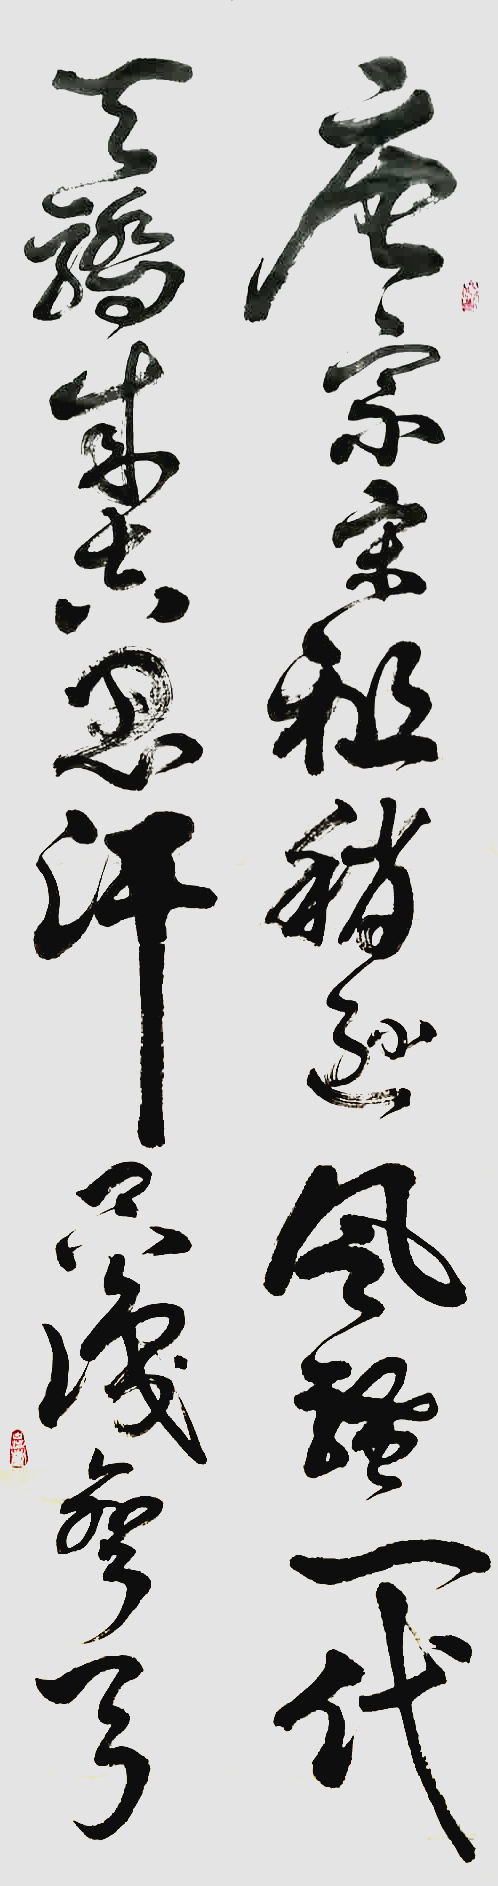 唐宗宋祖稍逊风骚一代
天骄成吉思汗只识弯弓